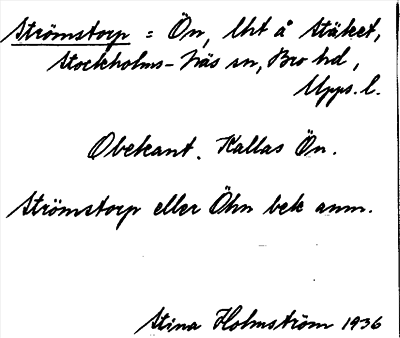 Strömstorp = Ön, lht å Stäket,
Stockholms-Näs sn, Bro hd,
Upps. l.
Obekant. Kallas Ön.
Strömstorp eller Öhn bek anm.
Stina Holmström 1936